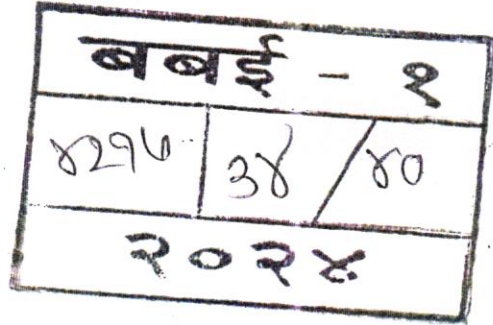 बबई - १
४२१७ ३४ / ४०
२०२४